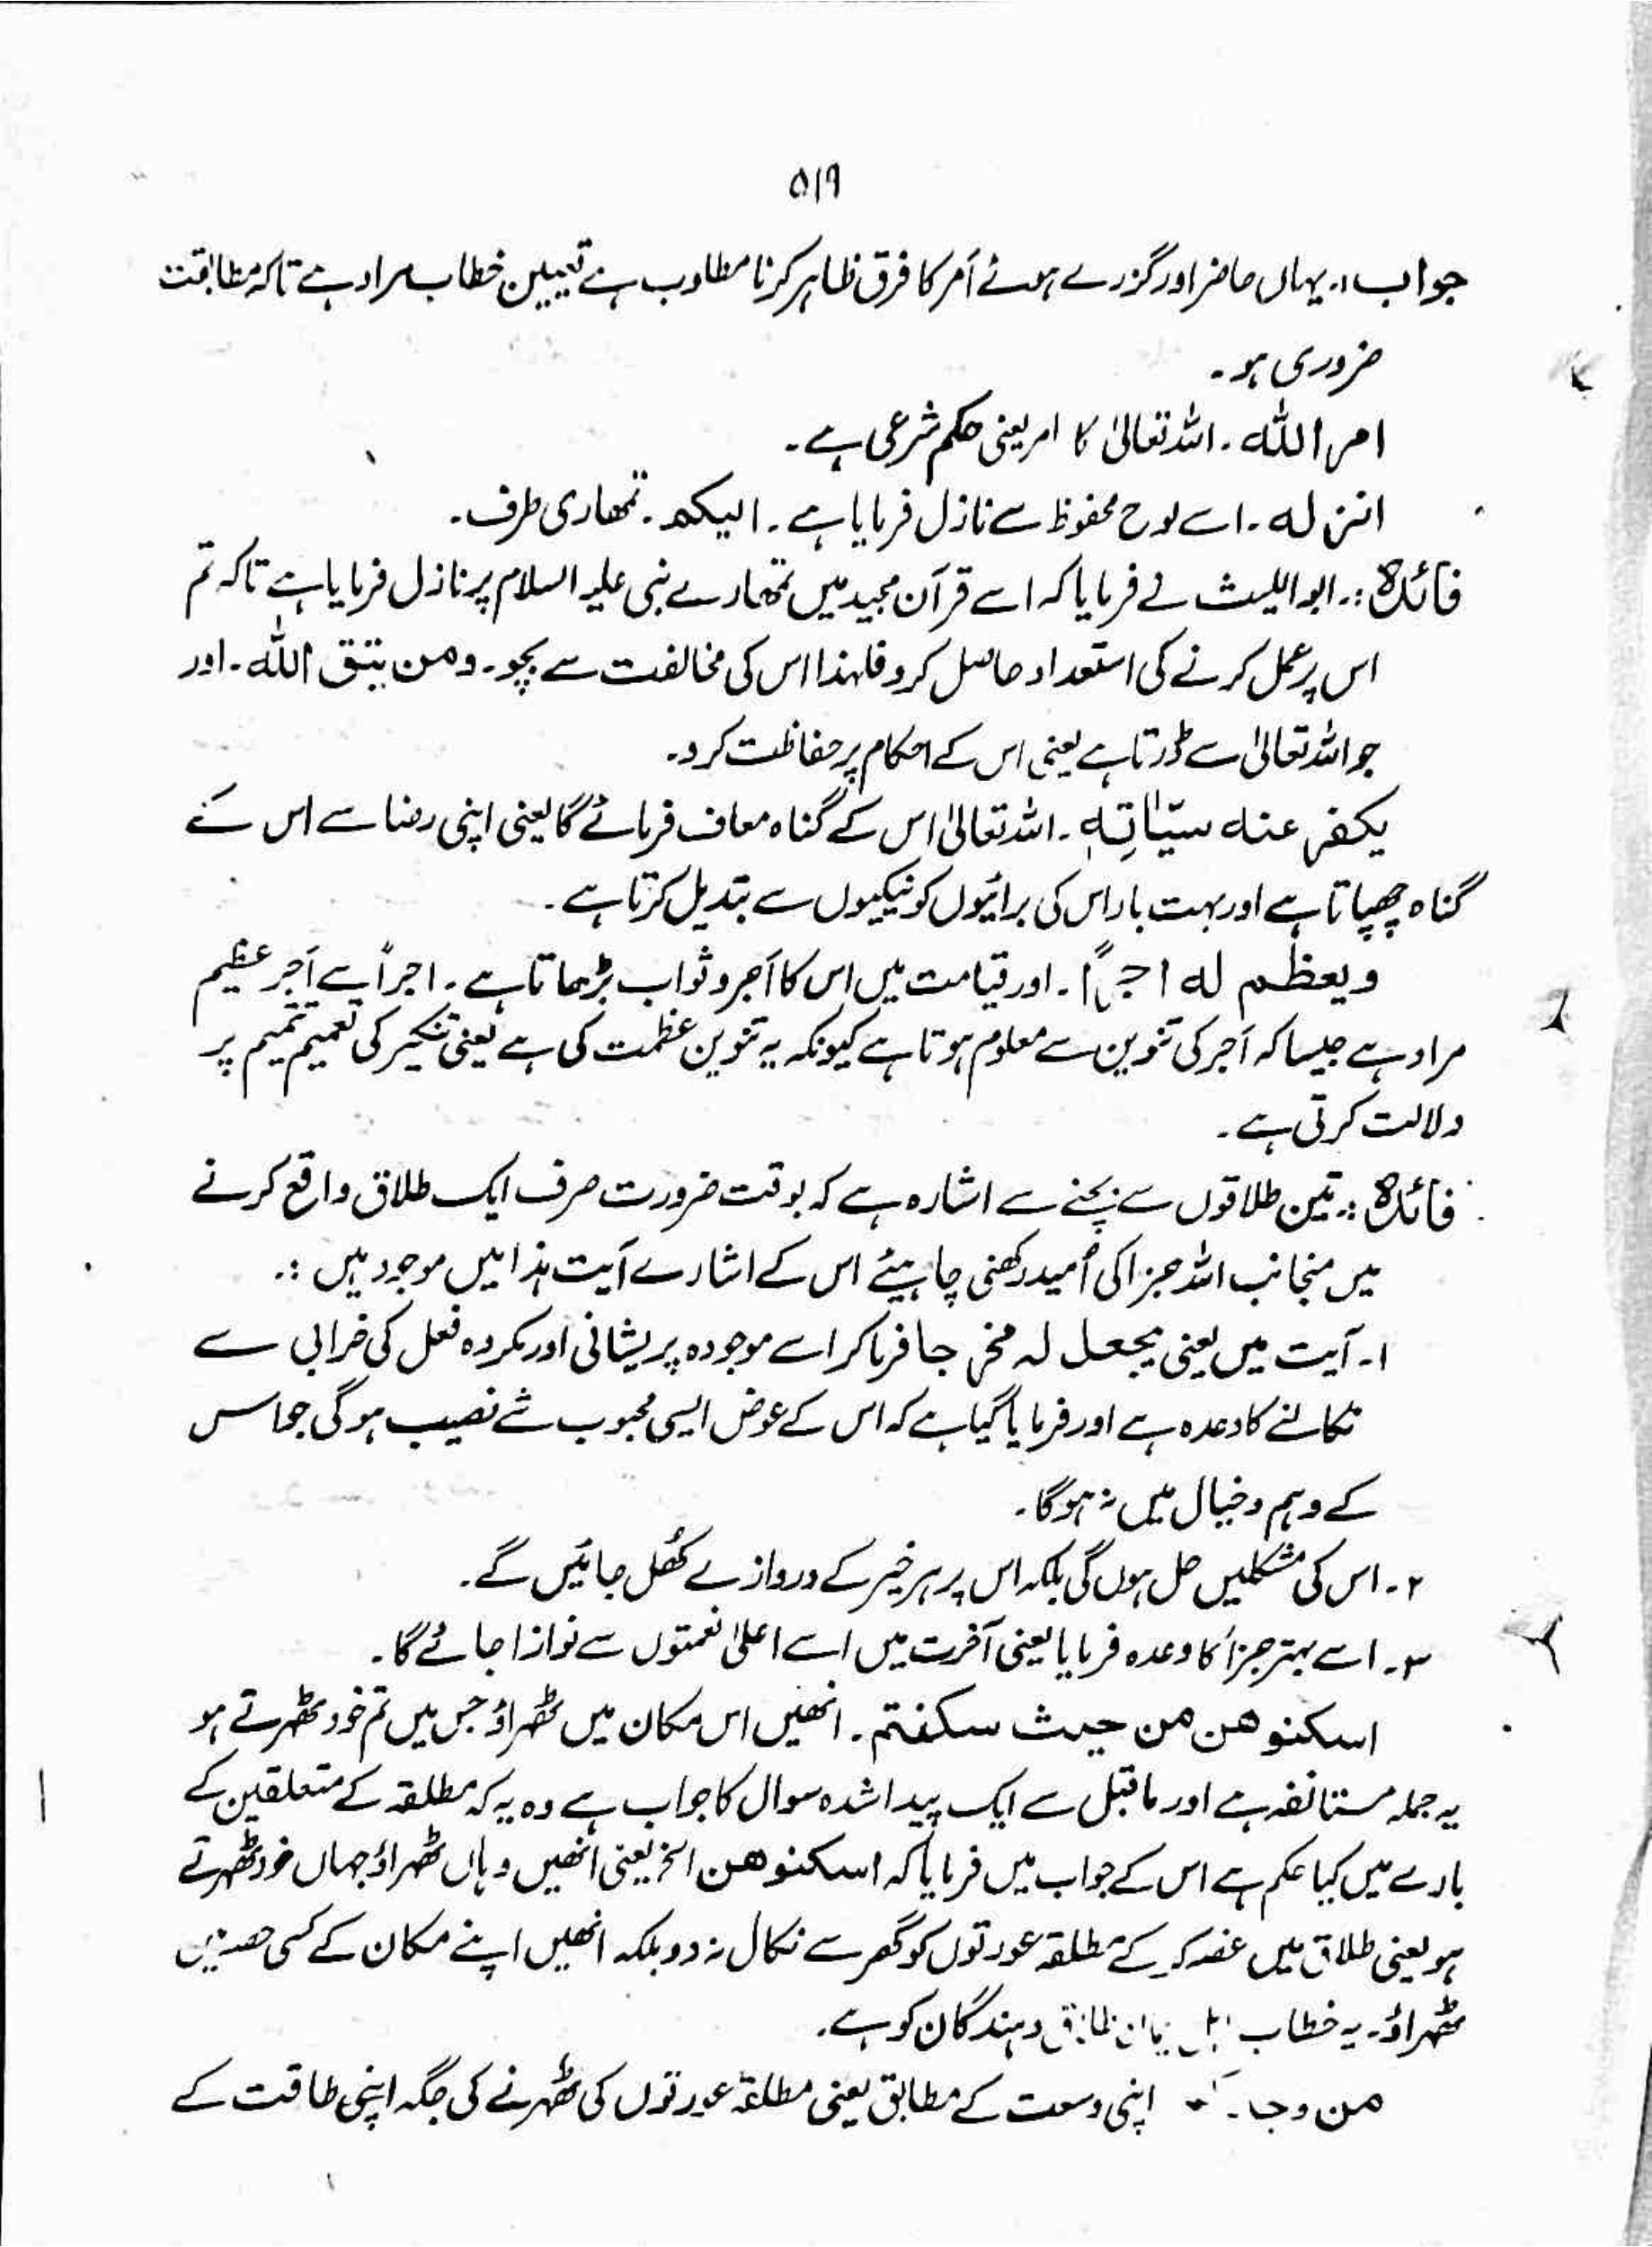 ۵۱۹
جواب:۔ یہاں حاضر اور گزرے ہوئے اَمر کا فرق ظاہر کرنا مطلوب ہے تعیین خطاب مراد ہے تاکہ مطابقت
ضروری ہو۔
امر اللّٰہ۔ اللہ تعالیٰ کا امر یعنی حکم شرعی ہے۔
انزلہ۔ اسے لوح محفوظ سے نازل فرمایا ہے۔ الیکم۔ تمھاری طرف۔
فائدہ:۔ ابو اللیث نے فرمایا کہ اسے قرآن مجید میں تمھارے نبی علیہ السلام پر نازل فرمایا ہے تاکہ تم
اس پر عمل کرنے کی استعداد حاصل کرو فلہذا اس کی مخالفت سے بچو۔ ومن یتق اللّٰہ۔ اور
جو اللہ تعالیٰ سے ڈرتا ہے یعنی اس کے احکام پر حفاظت کرو۔
یکفر عنہ سیّاٰتِہٖ۔ اللہ تعالیٰ اس کے گناہ معاف فرمائے گا یعنی اپنی رضا سے اس کے
گناہ چھپاتا ہے اور بہت بار اس کی برائیوں کو نیکیوں سے تبدیل کرتا ہے۔
ویعظم لہ اجرًا۔ اور قیامت میں اس کا اَجر و ثواب بڑھاتا ہے۔ اجراً سے اَجر عظیم
مراد ہے جیسا کہ اَجر کی تنوین سے معلوم ہوتا ہے کیونکہ یہ تنوین عظمت کی ہے یعنی تنکیر کی تعمیم تتمیم پر
دلالت کرتی ہے۔
فائدہ:۔ تین طلاقوں سے بچنے سے اشارہ ہے کہ بوقت ضرورت صرف ایک طلاق واقع کرنے
میں منجانب اللہ جزا کی اُمید رکھنی چاہیئے اس کے اشارے آیت ہذا میں موجود ہیں:۔
۱۔ آیت میں یعنی یجعل لہ مخرجا فرما کر اسے موجودہ پریشانی اور مکروہ فعل کی خرابی سے
نکالنے کا وعدہ ہے اور فرمایا گیا ہے کہ اس کے عوض ایسی محبوب شے نصیب ہوگی جو اس
کے وہم و خیال میں نہ ہوگا۔
۲۔ اس کی مشکلیں حل ہوں گی بلکہ اس پر ہر خیر کے دروازے کھُل جائیں گے۔
۳۔ اسے بہتر جزا کا وعدہ فرمایا یعنی آخرت میں اسے اعلیٰ نعمتوں سے نوازا جائے گا۔
اسکنوھن من حیث سکنتم۔ انھیں اس مکان میں ٹھہراؤ جس میں تم خود ٹھہرتے ہو
یہ جملہ مستانفہ ہے اور ماقبل سے ایک پیدا شدہ سوال کا جواب ہے وہ یہ کہ مطلقہ کے متعلقین کے
بارے میں کیا حکم ہے اس کے جواب میں فرمایا کہ اسکنوھن الخ یعنی انھیں وہاں ٹھہراؤ جہاں خود ٹھہرتے
ہو یعنی طلاق میں غصہ کر کے مطلقہ عورتوں کو گھر سے نکال نہ دو بلکہ انھیں اپنے مکان کے کسی حصہ میں
ٹھہراؤ۔ یہ خطاب اہل دہندگان کو ہے۔
من اپنی وسعت کے مطابق یعنی مطلقہ عورتوں کی ٹھہرنے کی جگہ اپنی طاقت کے